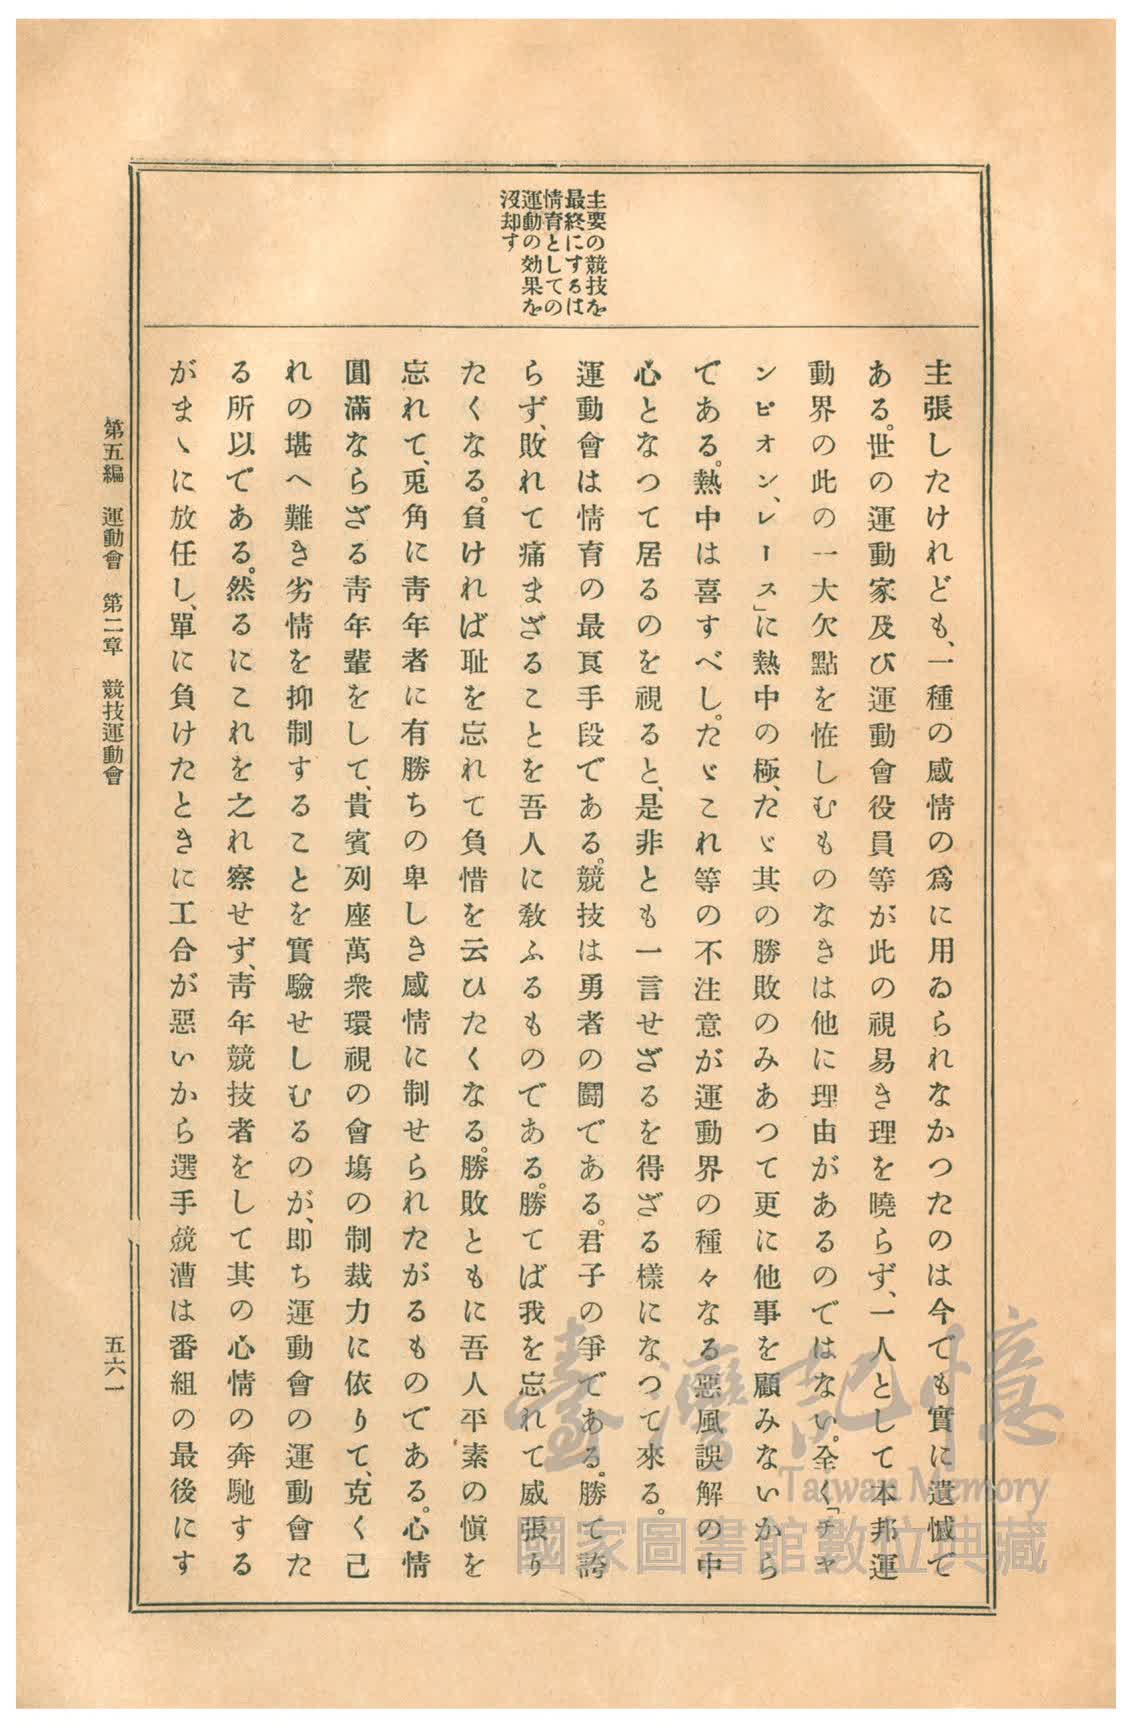 主要の競技を
最終にするは
情育としての
運動の効果を
沒却す
主張したけれども、一種の感情の爲に用ゐられなかつたのは今ても實に遺憾で
ある。世の運動家及び運動會役員等が此の視易き理を曉らず、一人として本邦運
動界の此の一大欠點を恠しむものなきは他に理由があるのではない。全く「チヤ
ンピオン、レース」に熱中の極、たゞ其の勝敗のみあつて更に他事を顧みないから
である。熱中は喜すべし。たゞこれ等の不注意が運動界の種々なる惡風誤解の中
心となつて居るのを視ると、是非とも一言せざるを得ざる樣になつて來る。
運動會は情育の最良手段である。競技は勇者の鬪である。君子の爭である。勝て誇
らず、敗れて痛まざることを吾人に敎ふるものである。勝てば我を忘れて威張り
たくなる。負ければ耻を忘れて負惜を云ひたくなる。勝敗ともに吾人平素の愼を
忘れて、兎角に靑年者に有勝ちの卑しき感情に制せられたがるものである。心情
圓滿ならざる靑年輩をして、貴賓列座萬衆環視の會塲の制裁力に依りて、克く己
れの堪へ難き劣情を抑制することを實驗せしむるのが、即ち運動會の運動會た
る所以である。然るにこれを之れ察せず、靑年競技者をして其の心情の奔馳する
がまゝに放任し、單に負けたときに工合が惡いから選手競漕は番組の最後にす
第五編　運動會　第二章　競技運動會
五六一
臺灣記憶
Taiwan Memory
國家圖書館數位典藏